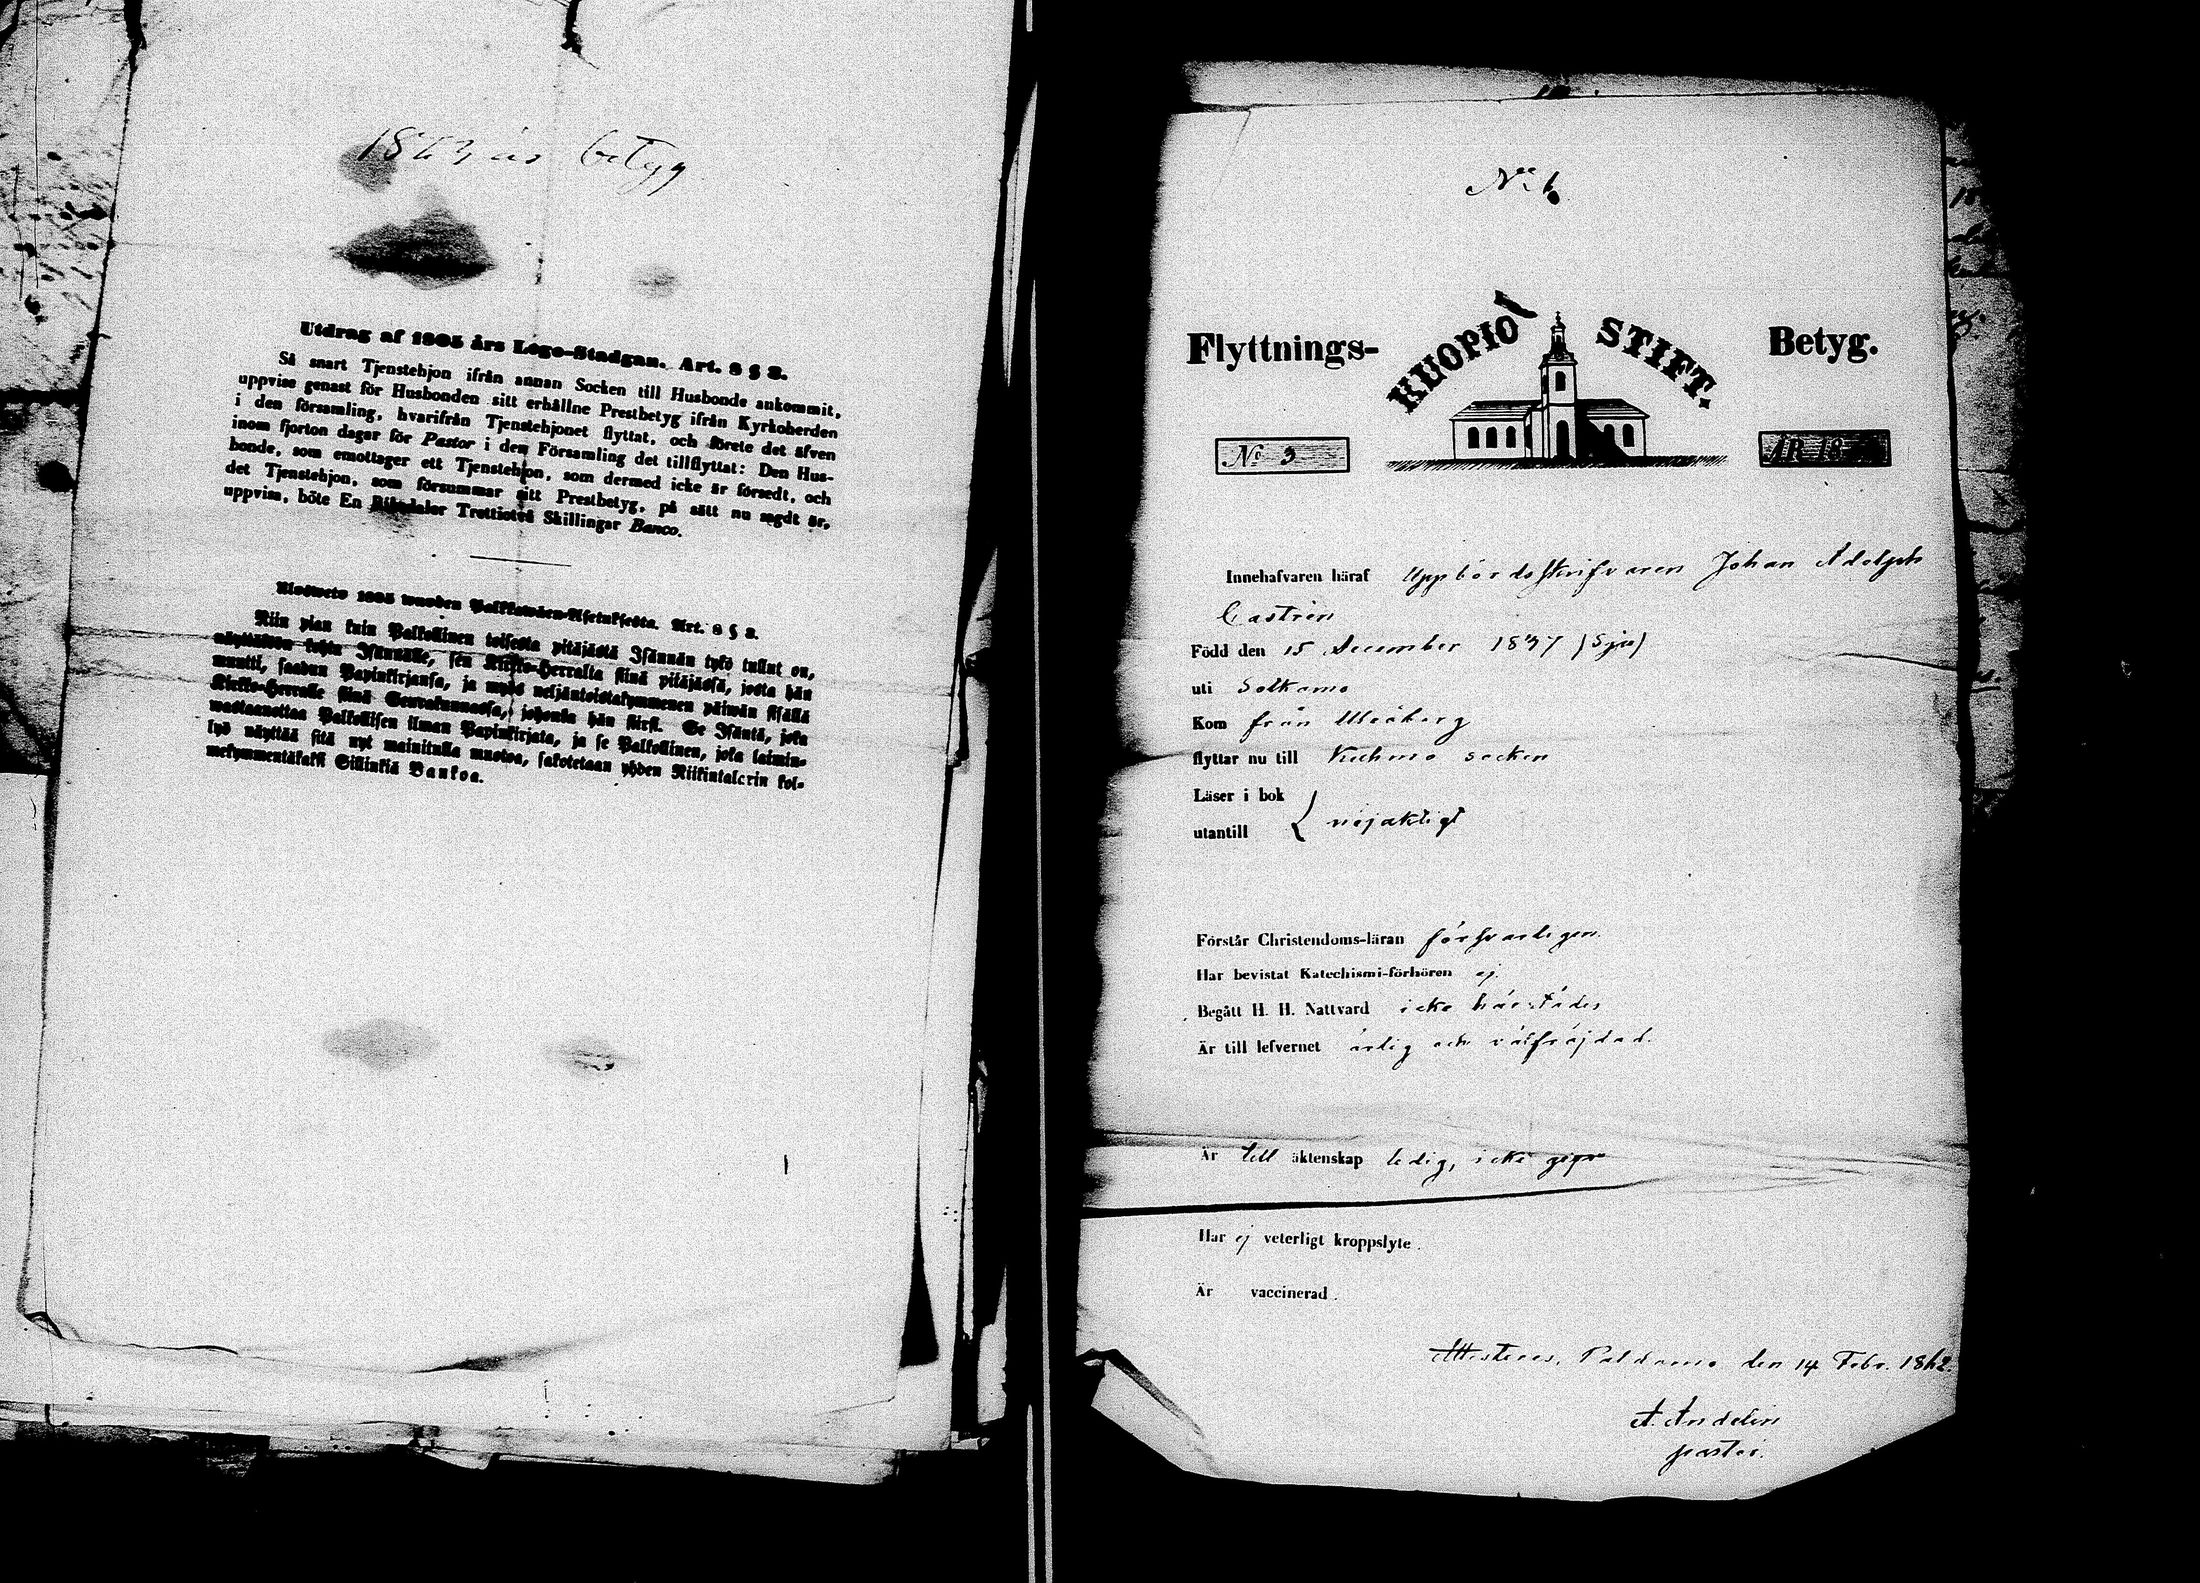 1863 års betyg
Utdrag af 1805 års Lego-Stadgan. Art. 8 § 2.
Så snart Tjenstehjon ifrån annan Socken till Husbonde ankommit,
uppvise genast för Husbonden sitt erhållne Prestbetyg ifrån Kyrkoherden
i den församling, hvarifrån Tjenstehjonet flyttat, och förete det äfven
inom fjorton dagar för Pastor i den Församling det tillflyttat: Den Hus-
bonde, som emottager ett Tjenstehjon, som dermed icke är försedt, och
det Tjenstehjon, som försummar sitt Prestbetyg, på sätt nu sagdt är,
uppvisa, böte En Riksdaler Trettiotvå Skillingar Banco.
Ulosweto 1805 wuoden Palkkawäen-Asetuksesta. Art. 8 § 2.
Niin pian kuin Palkollinen toisesta pitäjästä Isännän tykö tullut on,
näyttäkön kohta Isännälle, sen Kirkko-Herralta siinä pitäjässä, josta hän
muutti, saadun Papinkirjansa, ja myös neljäntoistakymmenen päiwän sisällä
Kirkko-Herralle siinä Seurakunnassa, johonka hän siirsi. Se Isäntä, joka
wastaanottaa Palkollisen ilman Papinkirjata, ja se Palkollinen, joka laimin-
lyö näyttää sitä nyt mainitulla muotoa, sakotetaan yhden Riikintalerin kol-
mekymmentäkaksi Sillinkiä Bankoa.
No 6
Flyttnings- KUOPIO STIFT. Betyg.
No 3 ÅR 18
Innehafvaren häraf Uppbördsskrifvaren Johan Adolph
Castrén
Född den 15 December 1837 (Sju)
uti Sotkamo
Kom från Uleåborg
flyttar nu till Kuhmo socken
Läser i bok
utantill nöjaktigt
Förstår Christendoms-läran försvarligen.
Har bevistat Katechismi-förhören ej.
Begått H. H. Nattvard icke härstädes
Är till lefvernet ärlig och välfräjdad.
Är till äktenskap ledig, icke
Har ej veterligt kroppslyte.
Är vaccinerad.
Attesteras, Paldamo den 14 Febr. 1862.
A. Andelin
pastor.